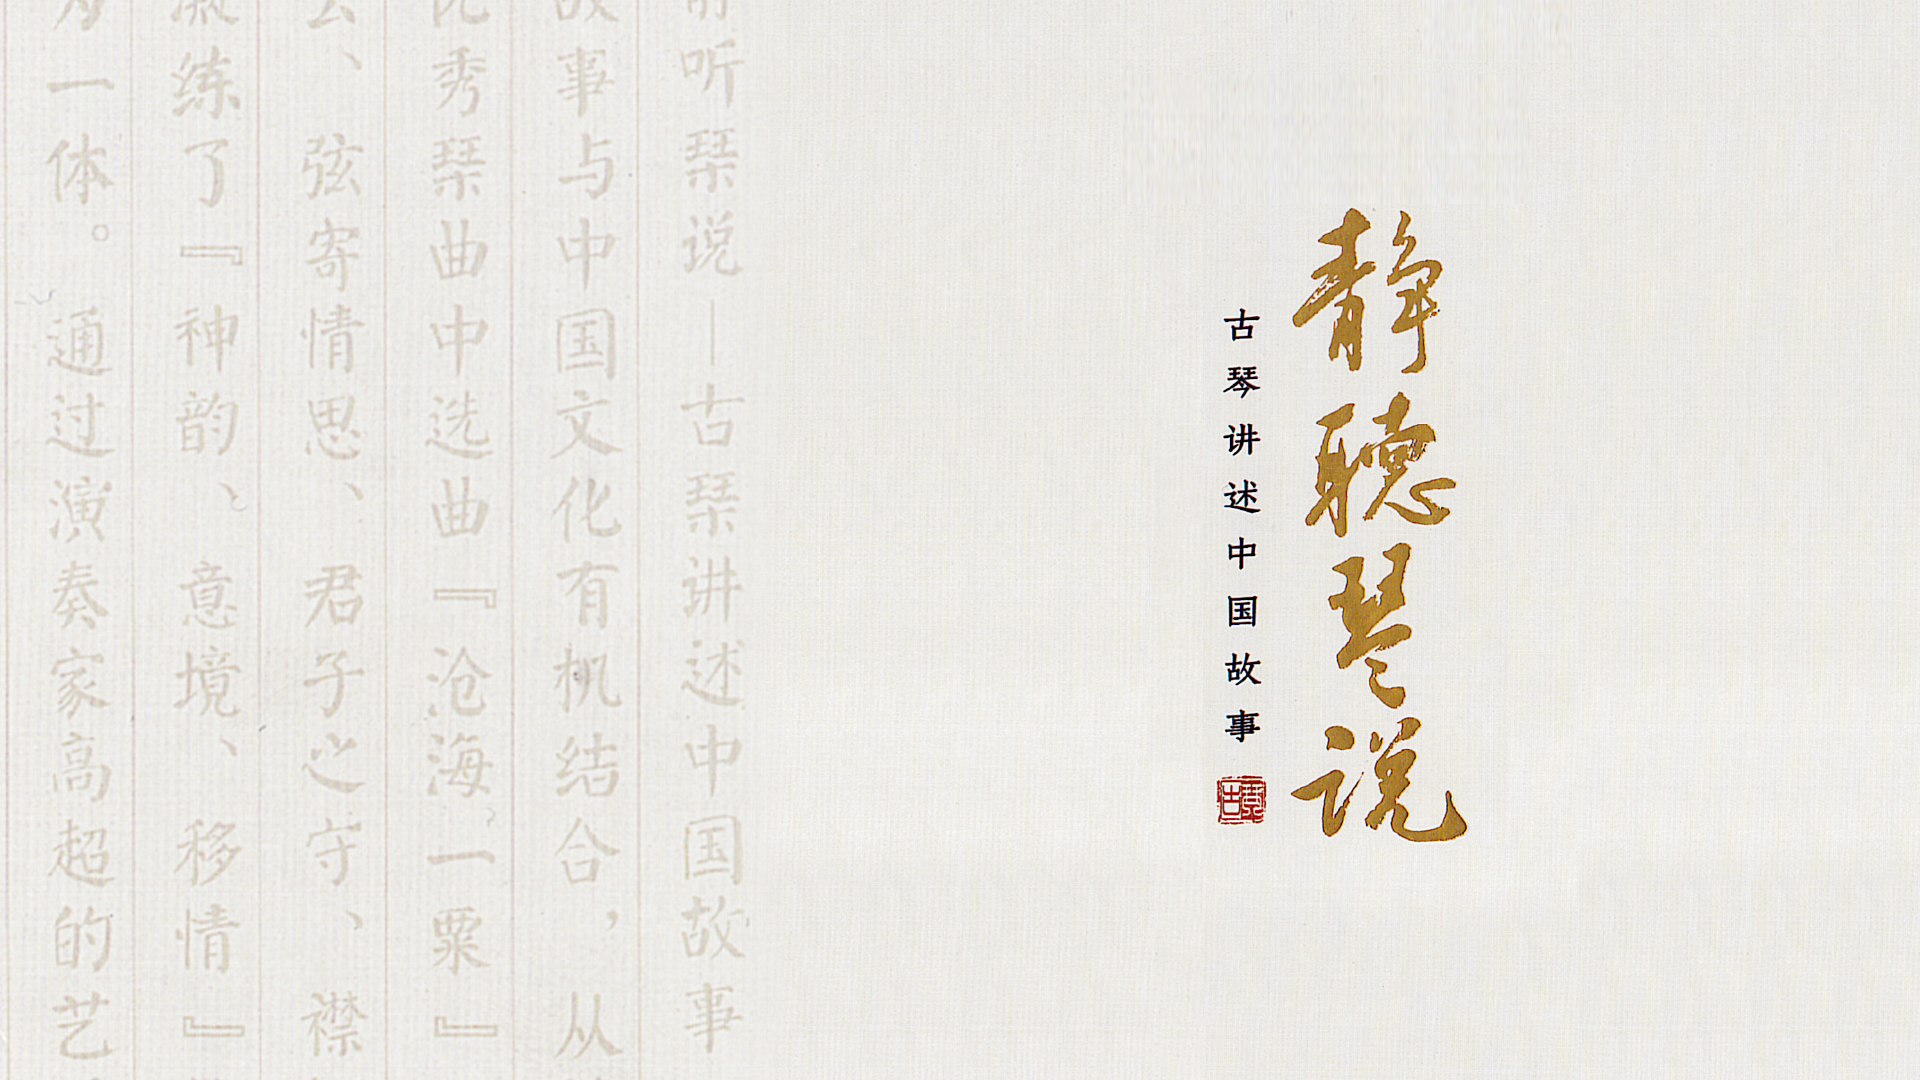 静聽琴说
古琴讲述中国故事
听琹说——古琹讲述中国故事
故事与中国文化有机结合，从
秀琹曲中选曲『沧海一粟』
、弦寄情思、君子之守、襟
凝练了『神韵、意境、移情』
为一体。通过演奏家高超的艺